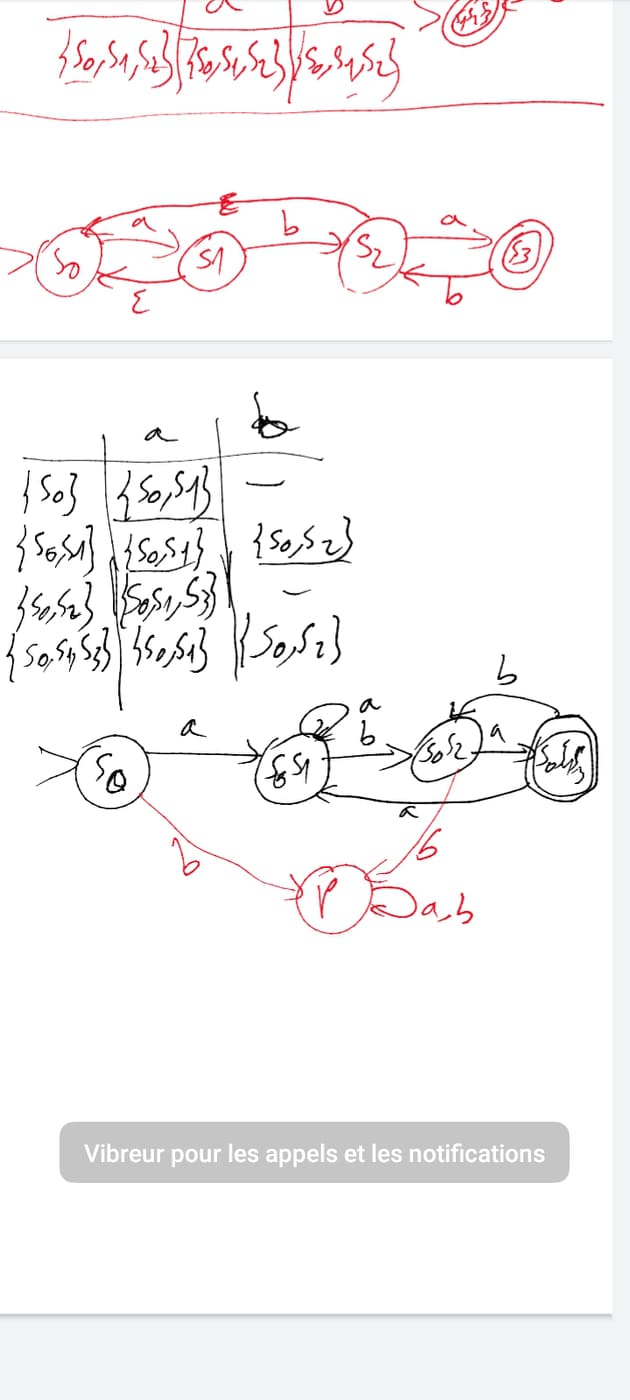 a b
{S0,S1,S2} {S0,S1,S2} {S0,S1,S2}
ε
a b a
S0 S1 S2 S3
ε b
a b
{S0} {S0,S1} —
{S0,S1} {S0,S1} {S0,S2}
{S0,S2} {S0,S1,S3} —
{S0,S1,S3} {S0,S1} {S0,S2}
b
a a b a
S0 S0S1 S0S2 S0S1S3
a
b b
P a,b
Vibreur pour les appels et les notifications